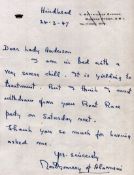 Hindhead
24-3-47
Dear Lady Anderson
I am in bed with a
very severe chill. It is yielding to
treatment. But I think I must
withdraw from your Boat Race
party on Saturday next.
Thank you so much for having
asked me.
Yrs. sincerely
Montgomery of Alamein